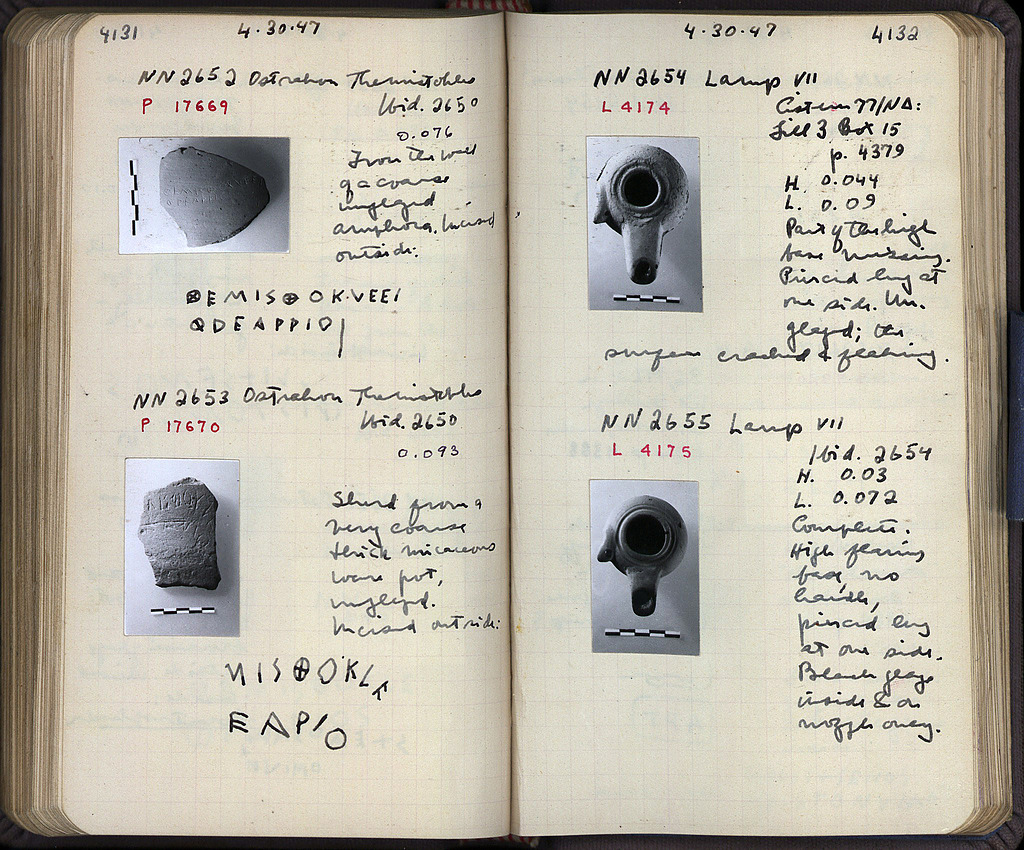 4131
4·30·47
NN 2652 Ostrakon Themistokles
P 17669
Ibid. 2650
0.076
From the wall
of a coarse
unglazed
amphora. Incised
outside:
ⴲEMISⴲOK·VEEI
QDEAPPIO|
NN 2653 Ostrakon Themistokles
P 17670
Ibid. 2650
0.093
Sherd from a
very coarse
thick micaceous
ware pot,
unglazed.
Incised outside:
NISⴲOKL
EAPIO
4·30·47
4132
NN 2654 Lamp VII
L 4174
Cistern 77/ΝΔ:
Fill 3 Box 15
p. 4379
H. 0.044
L. 0.09
Part of the high
base missing.
Pierced lug at
one side. Un-
glazed; the
surface cracked & flaking.
NN 2655 Lamp VII
L 4175
Ibid. 2654
H. 0.03
L. 0.072
Complete.
High flaring
base, no
handle,
pierced lug
at one side.
Black glaze
inside & on
nozzle only.